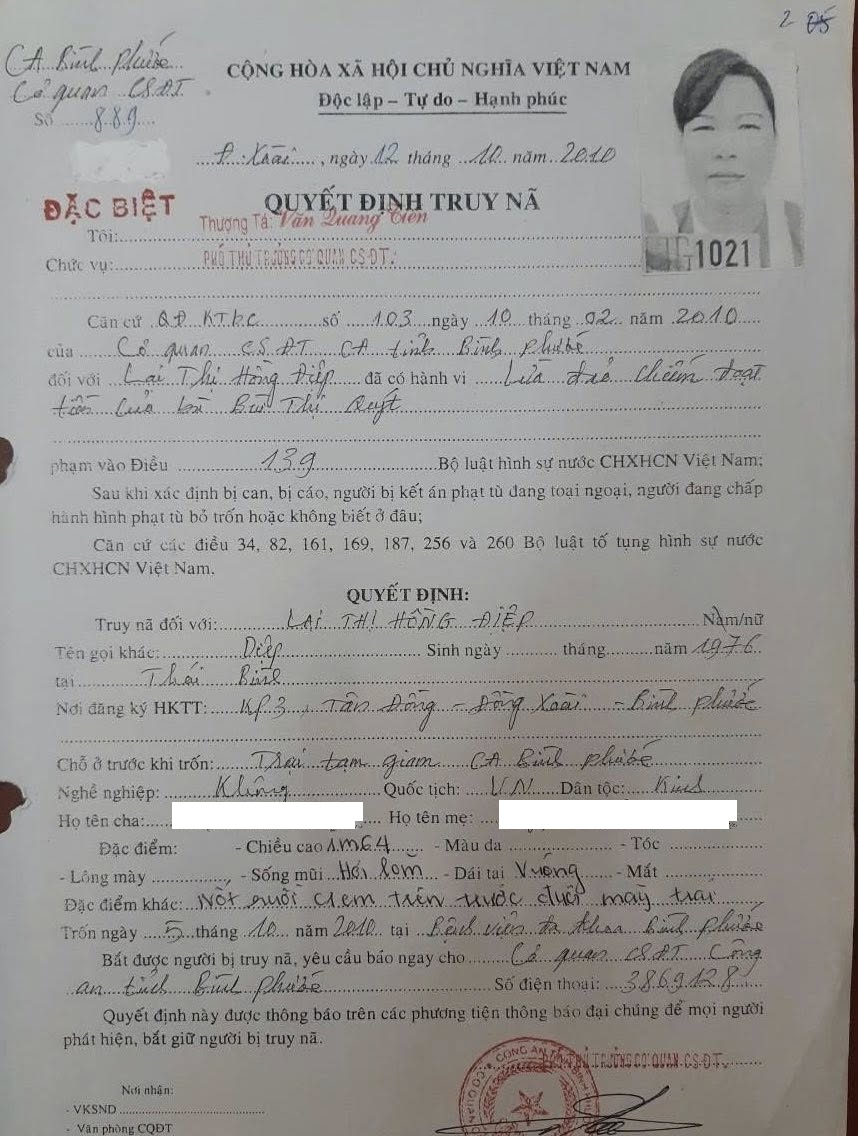 2 05
CA Bình Phước
Cơ quan CSĐT
Số ......889....
CỘNG HÒA XÃ HỘI CHỦ NGHĨA VIỆT NAM
Độc lập – Tự do – Hạnh phúc
....Đ. Xoài...., ngày 12 tháng ..10. năm..2010
1021
ĐẶC BIỆT
QUYẾT ĐỊNH TRUY NÃ
Tôi:.... Thượng Tá: Văn Quang Tiến
Chức vụ:.... PHÓ THỦ TRƯỞNG CƠ QUAN CSĐT.
Căn cứ .QĐ. KTBC. số ....103....ngày ..10.. tháng ..02.. năm 2010....
của ......Cơ quan CSĐT CA tỉnh Bình Phước
đối với ...Lại Thị Hồng Điệp.... đã có hành vi ....Lừa đảo chiếm đoạt
tiền của bà Bùi Thị Quýt
phạm vào Điều ............139.............Bộ luật hình sự nước CHXHCN Việt Nam;
Sau khi xác định bị can, bị cáo, người bị kết án phạt tù đang toại ngoại, người đang chấp
hành hình phạt tù bỏ trốn hoặc không biết ở đâu;
Căn cứ các điều 34, 82, 161, 169, 187, 256 và 260 Bộ luật tố tụng hình sự nước
CHXHCN Việt Nam.
QUYẾT ĐỊNH:
Truy nã đối với:.........LẠI THỊ HỒNG ĐIỆP........ Nam/nữ
Tên gọi khác:............Diệp............ Sinh ngày .......... tháng..........năm 1976
tại ........Thái Bình
Nơi đăng ký HKTT: ..KP3, Tân Đồng – Đồng Xoài – Bình Phước
Chỗ ở trước khi trốn:.....Trại tạm giam CA Bình Phước
Nghề nghiệp: ........Không........Quốc tịch:....VN....Dân tộc:...Kinh
Họ tên cha:.... Họ tên mẹ: ....
Đặc điểm: - Chiều cao 1m64.... - Màu da .............. - Tóc ..............
- Lông mày .............. - Sống mũi .Hơi lõm.. - Dái tai Vuông...... - Mắt ..............
Đặc điểm khác: Nốt ruồi C1cm trên trước đuôi mày trái
Trốn ngày ...5...tháng .10.. năm 2010. tại ..Bệnh viện đa khoa Bình Phước
Bắt được người bị truy nã, yêu cầu báo ngay cho .....Cơ quan CSĐT Công
an tỉnh Bình Phước.... Số điện thoại: ..3869128
Quyết định này được thông báo trên các phương tiện thông báo đại chúng để mọi người
phát hiện, bắt giữ người bị truy nã.
PHÓ THỦ TRƯỞNG CƠ QUAN CSĐT.
Nơi nhận:
- VKSND ..............
- Văn phòng CQĐT